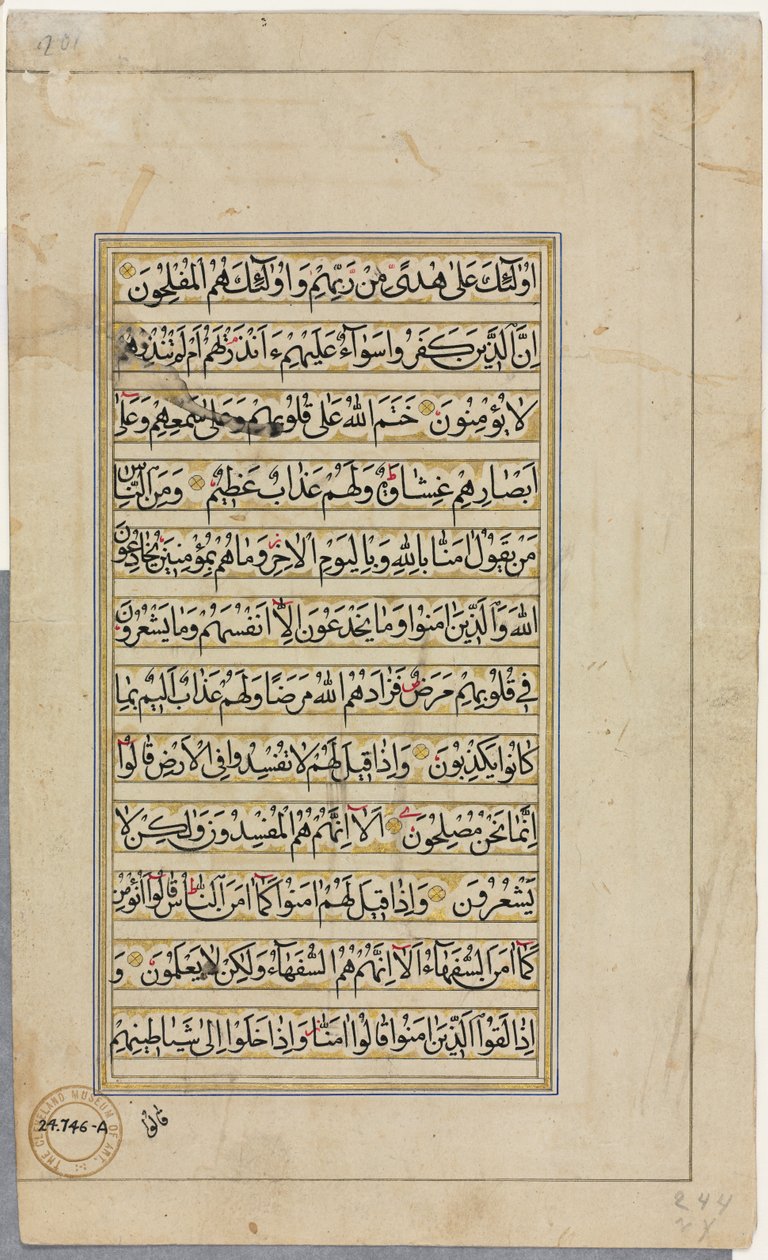 201
اُولٰٓئِكَ عَلٰى هُدًى مِنْ رَبِّهِمْ وَاُولٰٓئِكَ هُمُ الْمُفْلِحُونَ
اِنَّ الَّذِينَ كَفَرُوا سَوَآءٌ عَلَيْهِمْ ءَاَنْذَرْتَهُمْ اَمْ لَمْ تُنْذِرْهُمْ
لَا يُؤْمِنُونَ خَتَمَ اللّٰهُ عَلٰى قُلُوبِهِمْ وَعَلٰى سَمْعِهِمْ وَعَلٰٓى
اَبْصَارِهِمْ غِشَاوَةٌ وَلَهُمْ عَذَابٌ عَظِيمٌ وَمِنَ النَّاسِ
مَنْ يَقُولُ اٰمَنَّا بِاللّٰهِ وَبِالْيَوْمِ الْاٰخِرِ وَمَا هُمْ بِمُؤْمِنِينَ يُخَادِعُونَ
اللّٰهَ وَالَّذِينَ اٰمَنُوا وَمَا يَخْدَعُونَ اِلَّآ اَنْفُسَهُمْ وَمَا يَشْعُرُونَ
فِي قُلُوبِهِمْ مَرَضٌ فَزَادَهُمُ اللّٰهُ مَرَضًا وَلَهُمْ عَذَابٌ اَلِيمٌ بِمَا
كَانُوا يَكْذِبُونَ وَاِذَا قِيلَ لَهُمْ لَا تُفْسِدُوا فِي الْاَرْضِ قَالُوٓا
اِنَّمَا نَحْنُ مُصْلِحُونَ اَلَآ اِنَّهُمْ هُمُ الْمُفْسِدُونَ وَلٰكِنْ لَا
يَشْعُرُونَ وَاِذَا قِيلَ لَهُمْ اٰمِنُوا كَمَآ اٰمَنَ النَّاسُ قَالُوٓا اَنُؤْمِنُ
كَمَآ اٰمَنَ السُّفَهَآءُ اَلَآ اِنَّهُمْ هُمُ السُّفَهَآءُ وَلٰكِنْ لَا يَعْلَمُونَ وَ
اِذَا لَقُوا الَّذِينَ اٰمَنُوا قَالُوٓا اٰمَنَّا وَاِذَا خَلَوْا اِلٰى شَيَاطِينِهِمْ
قالوا
THE CLEVELAND MUSEUM OF ART
24.746-A
244